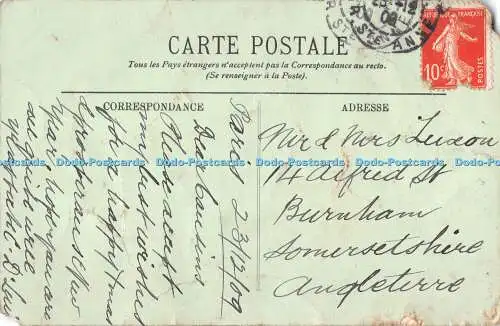 CARTE POSTALE
Tous les Pays étrangers n'acceptent pas la Correspondance au recto.
(Se renseigner à la Poste).
CORRESPONDANCE
ADRESSE
REPUBLIQUE FRANÇAISE
10c
Paris 23/12/09
Dear Cousins
Please accept
my best wishes
for happy Xmas
& prosperous New
Year. hope you are
all quite
Mr & Mrs Luxon
14 Alfred St
Burnham
Somersetshire
Angleterre
Dodo-Postcards Dodo-Postcards Dodo-Postcards Dodo-Postcards Dodo-Postcards